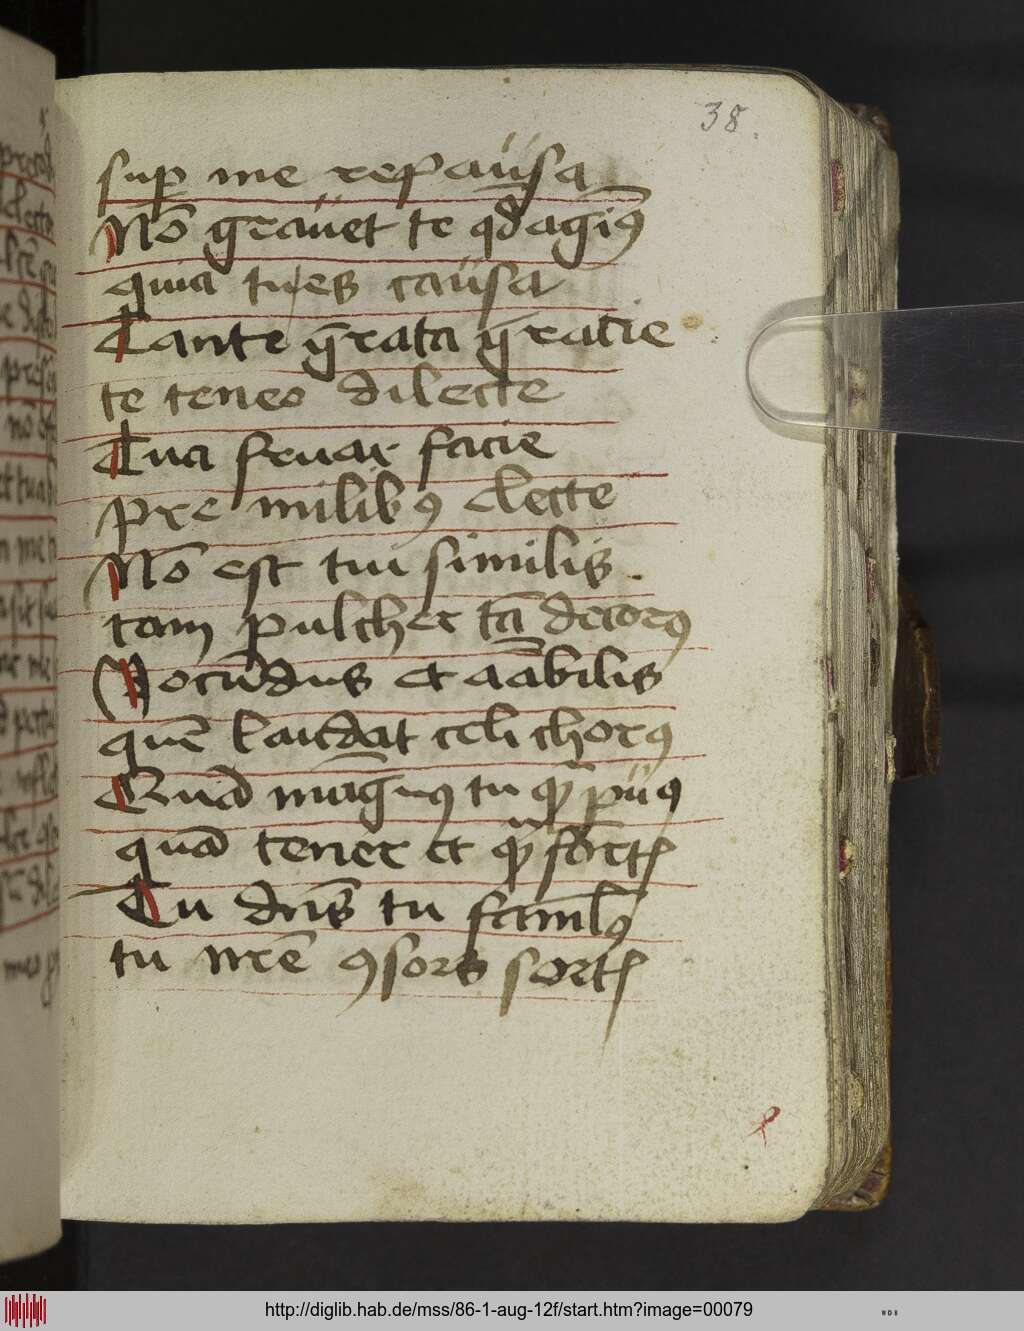 38.
sup me repausa
Nō grauet te qd agim9
quia tu es causa
Tante grata gracie
te teneo dilecte
Tua fruar facie
pre milib9 electe
Nō est tui similis.
tam pulcher tā decor9
Jocūdus et aābilis
quē laudat celi chor9
Quā magn9 tu qꝫ pius
quā tener et qꝫ fortꝭ
Tu dn̄s tu faml9
tu nr̄e ꝯsors sortꝭ
http://diglib.hab.de/mss/86-1-aug-12f/start.htm?image=00079